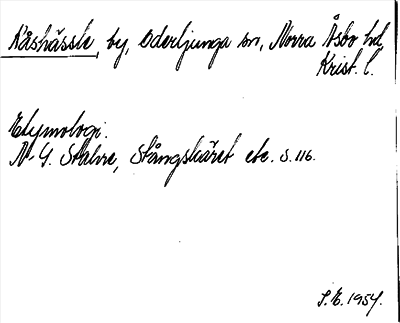 Råshässle, by, Oderljunga sn, Norra Åsbo hd,
Krist. l.
Etymologi.
N.-G. Stahre, Stångskäret etc. s. 116.
S.E. 1954.